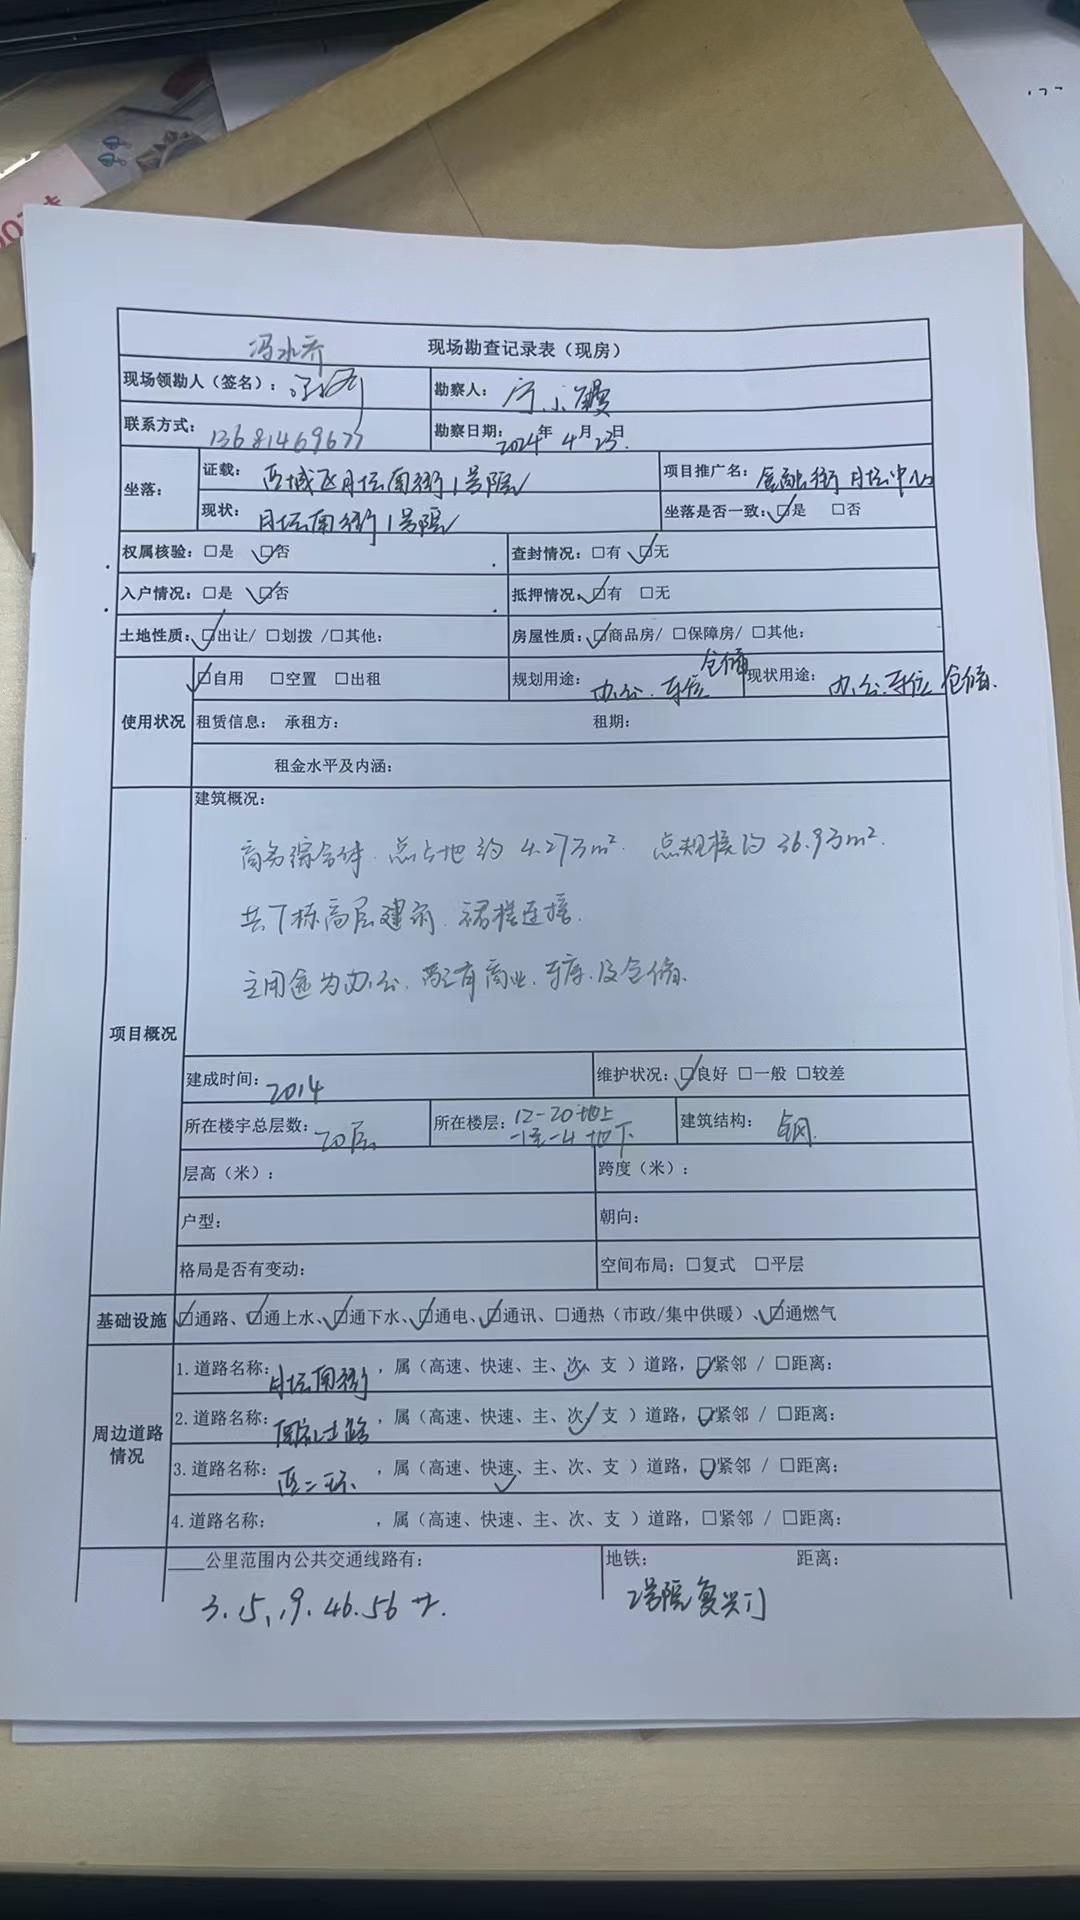 冯水乔
现场勘查记录表（现房）
现场领勘人（签名）： 勘察人：
联系方式：13681469677 勘察日期：2024年4月23日
坐落： 证载：西城区月坛南街1号院 项目推广名：金融街月坛中心
现状：月坛南街1号院 坐落是否一致：☑是 □否
权属核验：□是 ☑否 查封情况：□有 ☑无
入户情况：□是 ☑否 抵押情况：☑有 □无
土地性质：☑出让/ □划拨 /□其他： 房屋性质：☑商品房/ □保障房/ □其他：
使用状况 ☑自用 □空置 □出租 规划用途：办公.车位 仓储 现状用途：办公.车位 仓储.
租赁信息： 承租方： 租期：
租金水平及内涵：
项目概况 建筑概况：
商务综合体.总占地约4.2万m². 总规模约36.9万m².
共7栋高层建筑.裙楼连接.
主用途为办公.配有商业.车库.及仓储.
建成时间：2014 维护状况：☑良好 □一般 □较差
所在楼宇总层数：20层 所在楼层：12-20地上 -1至-4地下 建筑结构：钢.
层高（米）： 跨度（米）：
户型： 朝向：
格局是否有变动： 空间布局：□复式 □平层
基础设施 ☑通路、☑通上水、☑通下水、☑通电、☑通讯、□通热（市政/集中供暖）、☑通燃气
周边道路情况 1.道路名称：月坛南街 ，属（高速、快速、主、次、支 ）道路，☑紧邻 / □距离：
2.道路名称：南礼士路 ，属（高速、快速、主、次、支 ）道路，☑紧邻 / □距离：
3.道路名称：西二环. ，属（高速、快速、主、次、支 ）道路，☑紧邻 / □距离：
4.道路名称： ，属（高速、快速、主、次、支 ）道路，□紧邻 / □距离：
____公里范围内公共交通线路有： 地铁： 距离：
3.15.19.46.56 复兴门